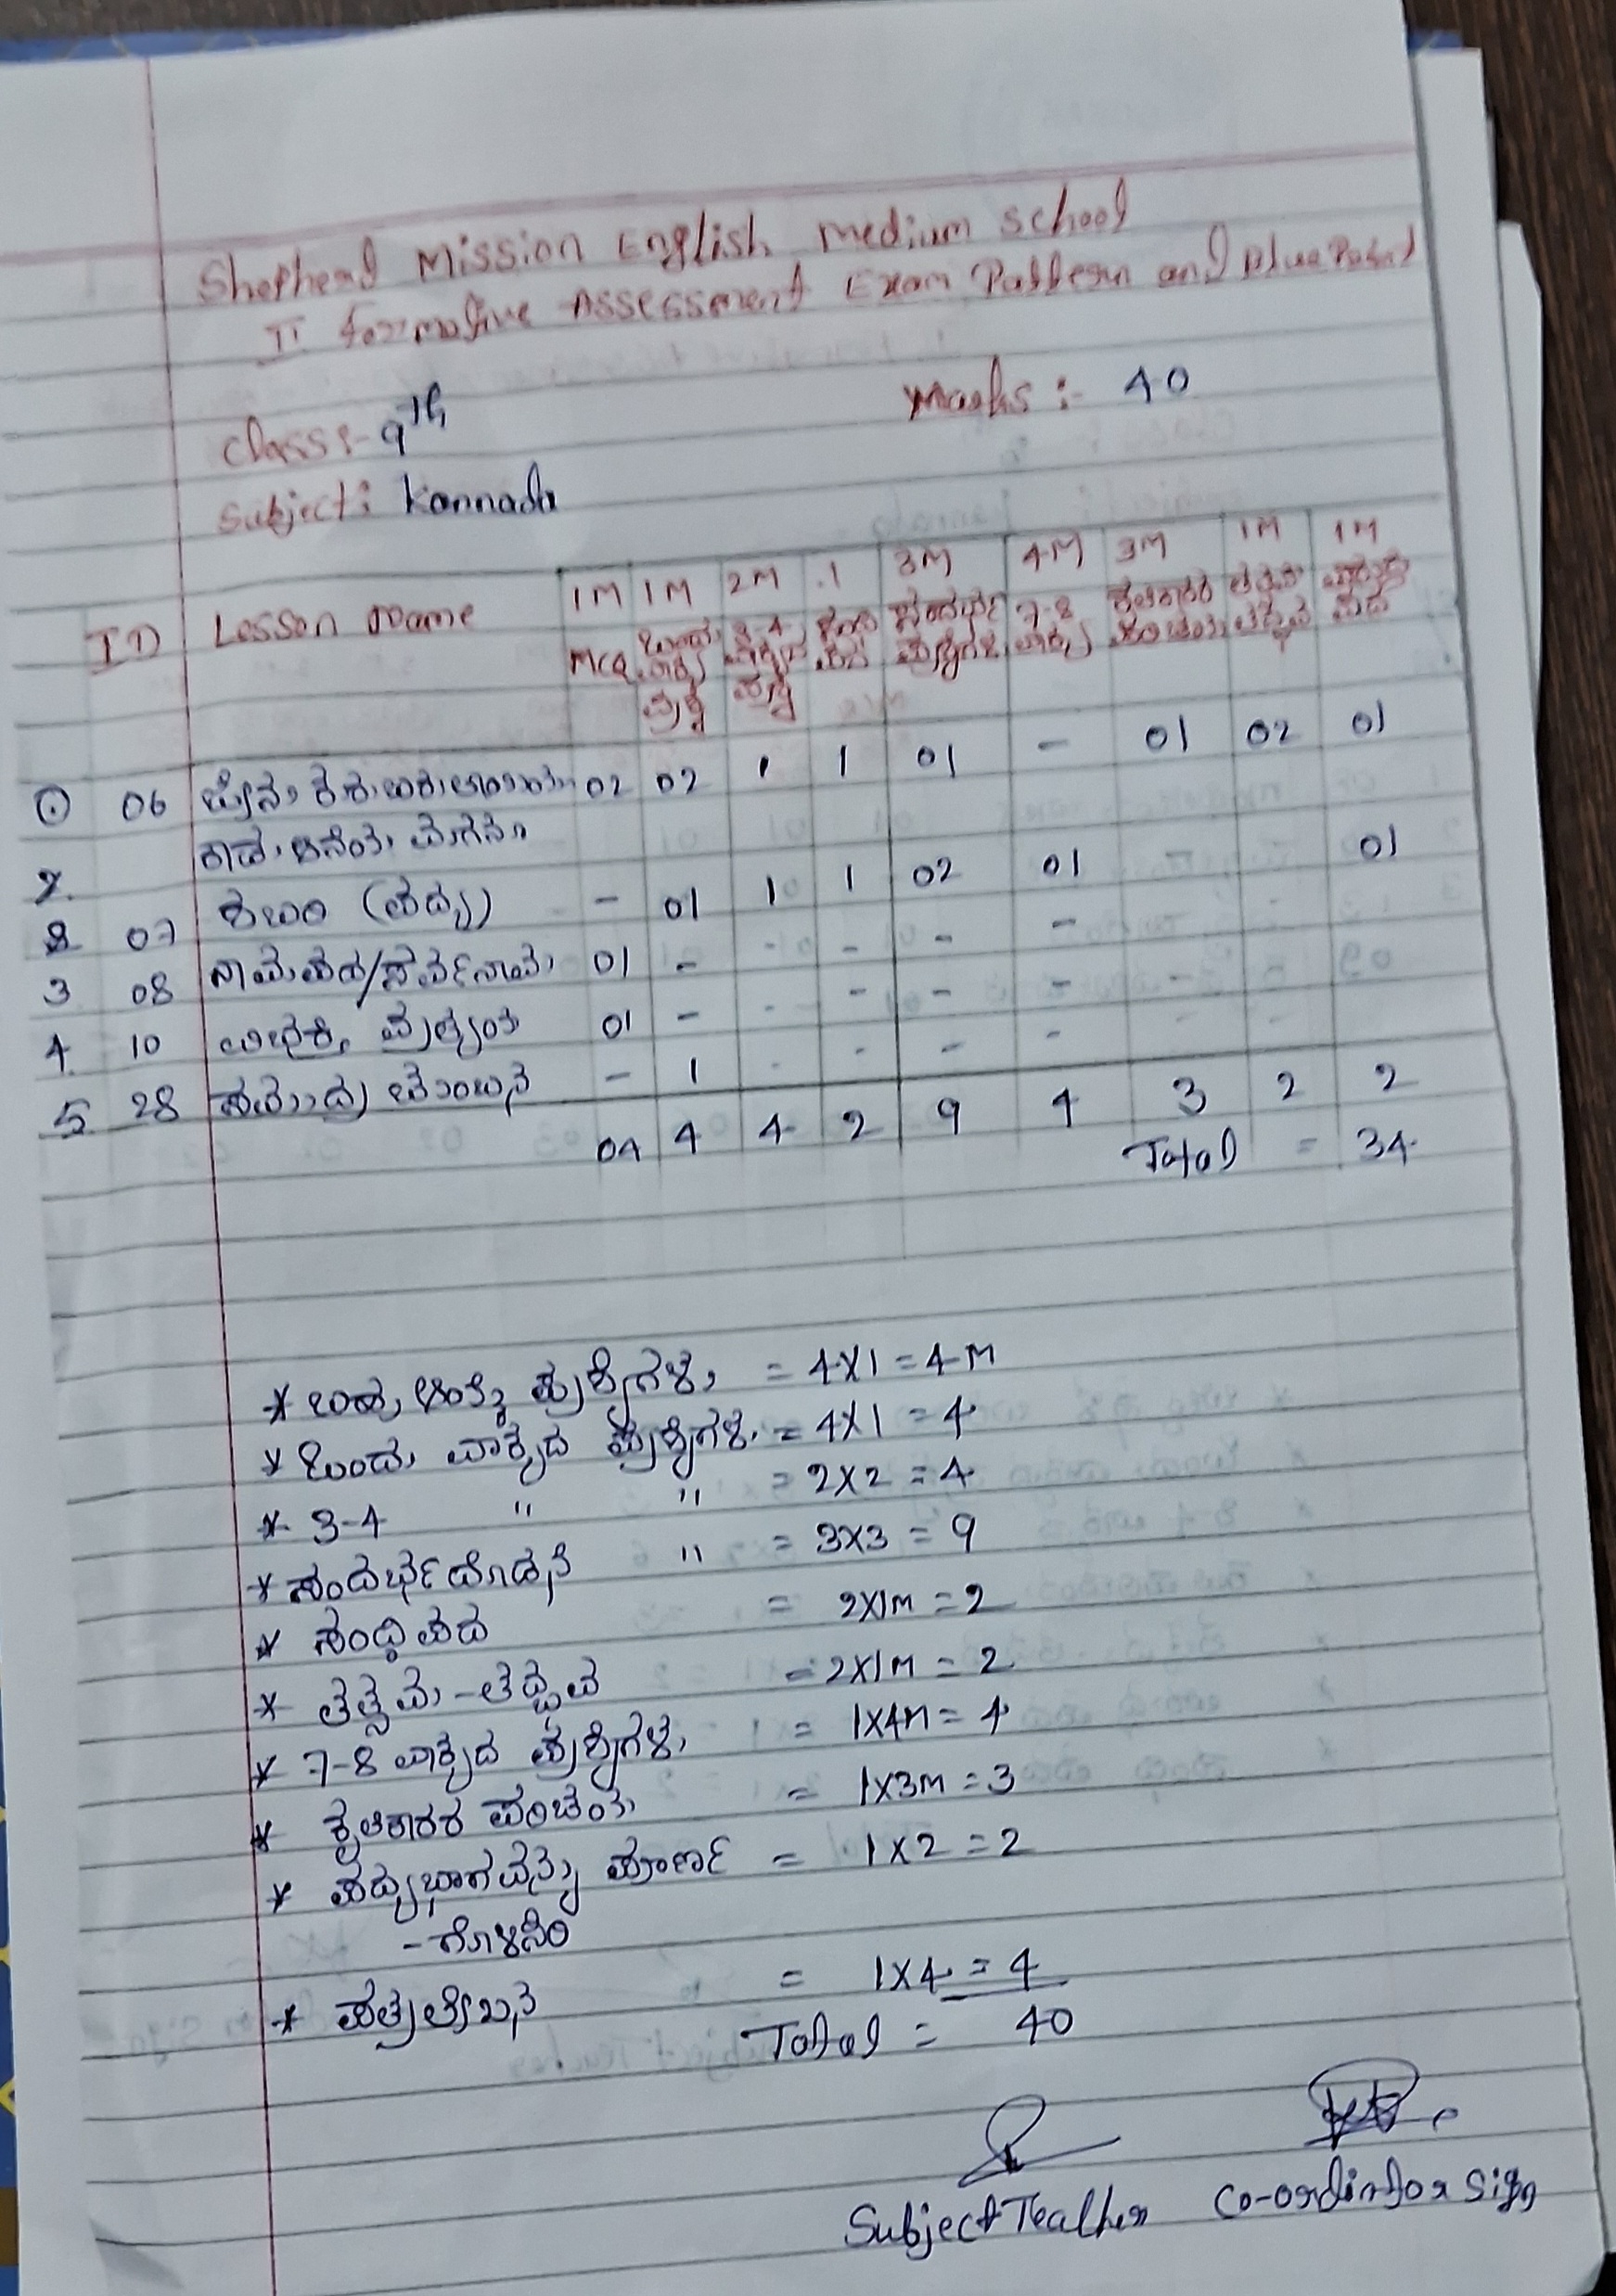 Shepherd Mission English Medium School
II Formative Assessment Exam Pattern and Blue Print
Class:- 9th Marks :- 40
Subject: Kannada
ID Lesson Name 1M 1M 2M 1 3M 4M 3M 1M 1M
MCQ ಒಂದು ವಾಕ್ಯ ಪ್ರಶ್ನೆ 3-4 ವಾಕ್ಯದ ಪ್ರಶ್ನೆ ಸಂದರ್ಭ ಪ್ರಶ್ನೆಗಳು 7-8 ವಾಕ್ಯ
① 06 02 02 1 1 01 - 01 02 01
2.
07 (ಪದ್ಯ) - 01 1 1 02 01 01
3 08 ನಾಮಪದ/ಸರ್ವನಾಮ 01 - - - - -
4 10 ವಿಭಕ್ತಿ ಪ್ರತ್ಯಯ 01 - - - - - -
5 28 - 1 - - - -
04 4 4 2 9 4 3 2 2
Total = 34
* ಬಹು ಆಯ್ಕೆ ಪ್ರಶ್ನೆಗಳು = 4X1 = 4M
* ಒಂದು ವಾಕ್ಯದ ಪ್ರಶ್ನೆಗಳು = 4X1 = 4
* 3-4 " " = 2X2 = 4
* ಸಂದರ್ಭದೊಡನೆ " = 3X3 = 9
* ಸಂಧಿಪದ = 2X1M = 2
* ತತ್ಸಮ-ತದ್ಭವ = 2X1M = 2
* 7-8 ವಾಕ್ಯದ ಪ್ರಶ್ನೆಗಳು = 1X4M = 4
* ಕೃತಿಕಾರರ ಪರಿಚಯ = 1X3M = 3
* ಪದ್ಯಭಾಗವನ್ನು ಪೂರ್ಣ = 1X2 = 2
-ಗೊಳಿಸಿರಿ
* ಪತ್ರಲೇಖನ = 1X4 = 4
Total = 40
Subject Teacher Co-ordinator Sign